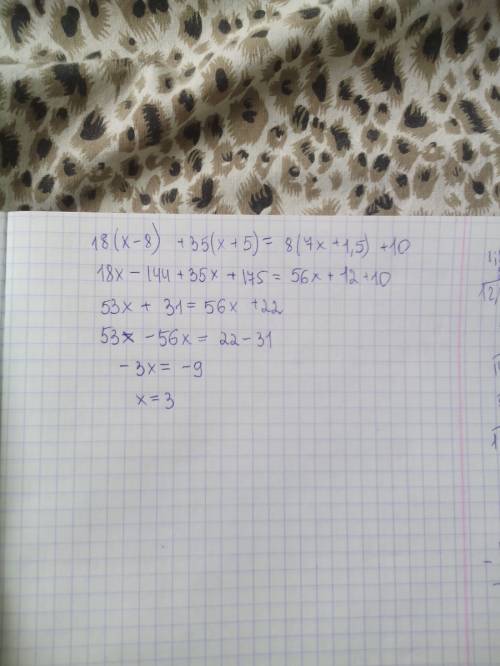 18(x-8) +35(x+5)= 8(7x+1,5) +10
18x-144+35x+175=56x+12+10
53x+31=56x+22
53x-56x=22-31
-3x=-9
x=3